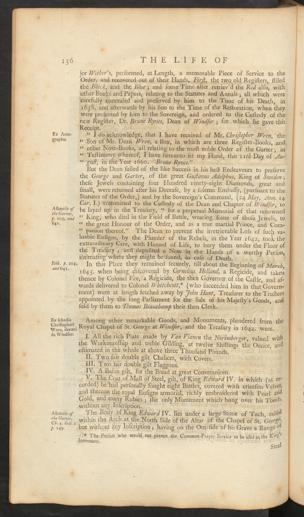 156 THE LIFE OF
jor Wither's, performed, at Length, a memorable Piece of Service to the
Order, and recovered out of their Hands, First, the two old Registers, stiled
the Black, and the Blue; and some Time after retriev'd the Red also, with
other Books and Papers, relating to the Statutes and Annals; all which were
carefully concealed and preserved by him to the Time of his Death, in
1658, and afterwards by his Son to the Time of the Restoration, when they
were presented by him to the Sovereign, and ordered to the Custody of the
new Register, Dr. Bruno Ryves, Dean of Windsor; for which he gave this
Receipt.
Ex Auto-
grapho.
" I do acknowledge, that I have received of Mr. Christopher Wren, the
" Son of Mr. Dean Wren, a Box, in which are three Register-Books, and
" other Note-Books, all relating to the most noble Order of the Garter; in
" Testimony whereof, I have hereunto set my Hand, this 11th Day of Au-
" gust, in the Year 1660. Bruno Ryves."
But the Dean failed of the like Success in his best Endeavours to preserve
the George and Garter, of the great Gustavus Adolphus, King of Sweden;
these Jewels containing four Hundred ninety-eight Diamonds, great and
small, were returned after his Decease, by a solemn Embassy, (pursuant to the
Statutes of the Order,) and by the Sovereign's Command, (24 May, Ann. 14
Car. I.) committed to the Custody of the Dean and Chapter of Windsor, to
Ashmole of
the Garter,
be layed up in the Treasury, " for a perpetual Memorial of that renowned
" King, who died in the Field of Battle, wearing some of those Jewels, to
" the great Honour of the Order, and as a true martial Prince, and Com-
" panion thereof." The Dean to prevent the irretrievable Loss of such va-
luable Ensigns, by the Plunder of the Rebels, in the Year 1642, took the
extraordinary Care, with Hazard of Life, to bury them under the Floor of
the Treasury; and deposited a Note in the Hands of a worthy Person,
intimating where they might be found, in case of Death.
In this Place they remained securely, till about the Beginning of March,
1645, when being discovered by Cornelius Holland, a Regicide, and taken
thence by Colonel Ven, a Regicide, the then Governor of the Castle, and af-
wards delivered to Colonel Whitchcot,* (who succeeded him in that Govern-
ment) were at length fetched away by John Hunt, Treasurer to the Trustees
appointed by the long Parliament for the Sale of his Majesty's Goods, and
sold by them to Thomas Beauchamp their then Clerk.
Among other remarkable Goods, and Monuments, plundered from the
Royal Chapel of St. George at Windsor, and the Treasury in 1642, were,
I. All the rich Plate made by Van Vianen the Norimberger, valued with
the Workmanship and noble Gilding, at twelve Shillings the Ounce, and
estimated in the whole at above three Thousand Pounds.
II. Two fair double gilt Chalices, with Covers.
III. Two fair double gilt Flaggons.
IV. A Bason gilt, for the Bread at great Communions.
V. The Coat of Mail of Steel, gilt, of King Edward IV. in which (as re-
corded) he had personally fought eight Battles, covered with crimson Velvet,
and thereon the royal Ensigns armorial, richly embroidered with Pearl and
Gold, and many Rubies; the only Monument which hung over his Tomb
without any Inscription.
Ashmole of
the Garter,
The Body of King Edward IV. lies under a large Stone of Touch, raised
within the Arch at the North Side of the Altar of the Chapel of St. George,
but without any Inscription, having on the Outside of his Grave a Range of
* The Person who would not permit the Common-Prayer Service to be used at the King's
Interment.
Steel